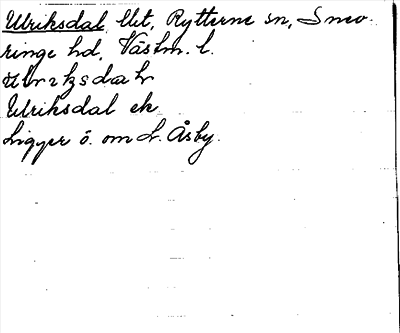 Ulriksdal, lht, Rytterne sn, Snev-
ringe hd, Västm. l.
Ulriksdal ek
Ligger ö. om L. Åsby.